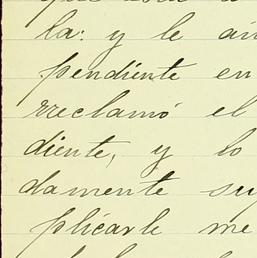 la: y le
pendiente en
rreclamó el
diente, y lo
damente su
plicarle me